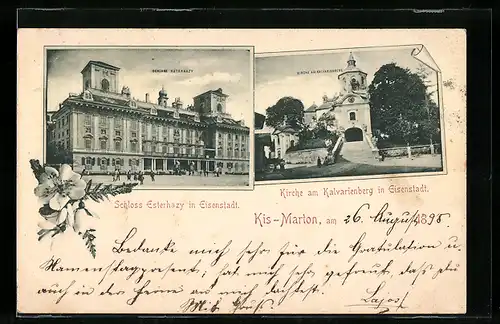 SCHLOSS ESTERHAZY
KIRCHE AM KALVARIENBERG
Schloss Esterhazy in Eisenstadt.
Kirche am Kalvarienberg in Eisenstadt.
Kis-Marton, am 26. August 1898
Bedanke mich sehr für die Gratulation u.
Namenstagspresent, hat mich sehr gefreut, daß du
auch in der Ferne an mich gedacht hattest.
Mit Gruß!
Lajos